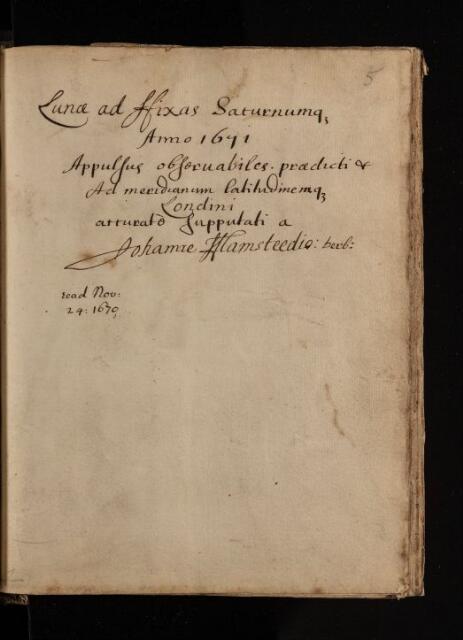 5
Lunæ ad ffixas Saturnumq,
Anno 1671
Appulsus observabiles. prædicti &
Ad meridianum latitudinemq,
Londini
accurate supputati a
Johanne Fflamsteedio: Derb:
read Nov:
24: 1670,